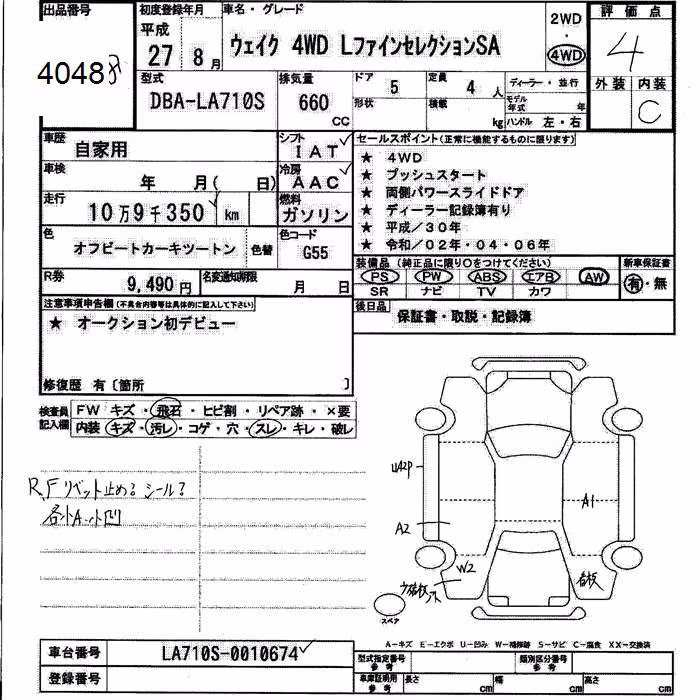 出品番号
40488
初度登録年月
平成
27 8月
車名・グレード
ウェイク 4WD Lファインセレクション SA
2WD
・
4WD
評価点
4
外装 内装
C
型式
DBA-LA710S
排気量
660
CC
ドア 5
形状
定員 4 人
積載 kg
ディーラー・並行
モデル年式 年
ハンドル 左・右
車歴
自家用
シフト
IAT
冷房
AAC
車検
年 月( 日)
走行
10万9千350 km
燃料
ガソリン
色
オフビートカーキツートン
色替
色コード
G55
R券
9,490円
名変通知期限
月 日
セールスポイント(正常に機能するものに限ります)
★ 4WD
★ プッシュスタート
★ 両側パワースライドドア
★ ディーラー記録簿有り
★ 平成/30年
★ 令和/02年・04・06年
装備品(純正品に限り○をつけてください)
PS PW ABS エアB AW
SR ナビ TV カワ
新車保証書
有・無
後日品
保証書・取説・記録簿
注意事項申告欄(不具合内容等は具体的に記入して下さい)
★ オークション初デビュー
修復歴 有〔箇所 〕
検査員記入欄
FW キズ・飛石・ヒビ割・リペア跡・×要
内装・キズ・汚レ・コゲ・穴・スレ・キレ・破レ
R,Fリベット止め? シール?
各小A 凹
U42P
A2
A1
W2
看板
スペア
A-キズ E-エクボ U-凹み W-補修跡 S-サビ C-腐食 XX-交換済
車台番号
LA710S-0010674
登録番号
型式指定番号
参考
類別区分番号
参考
車庫証明用
参考
長さ cm
幅 cm
高さ cm